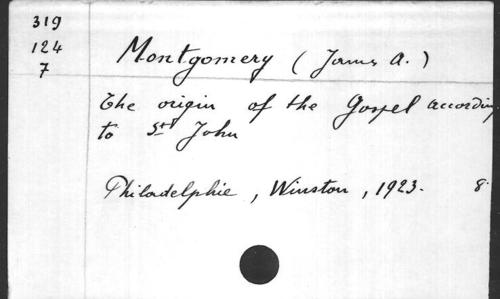 319
124
7
Montgomery (James A.)
The origin of the Gospel according
to St John
Philadelphie, Winston, 1923. 8.